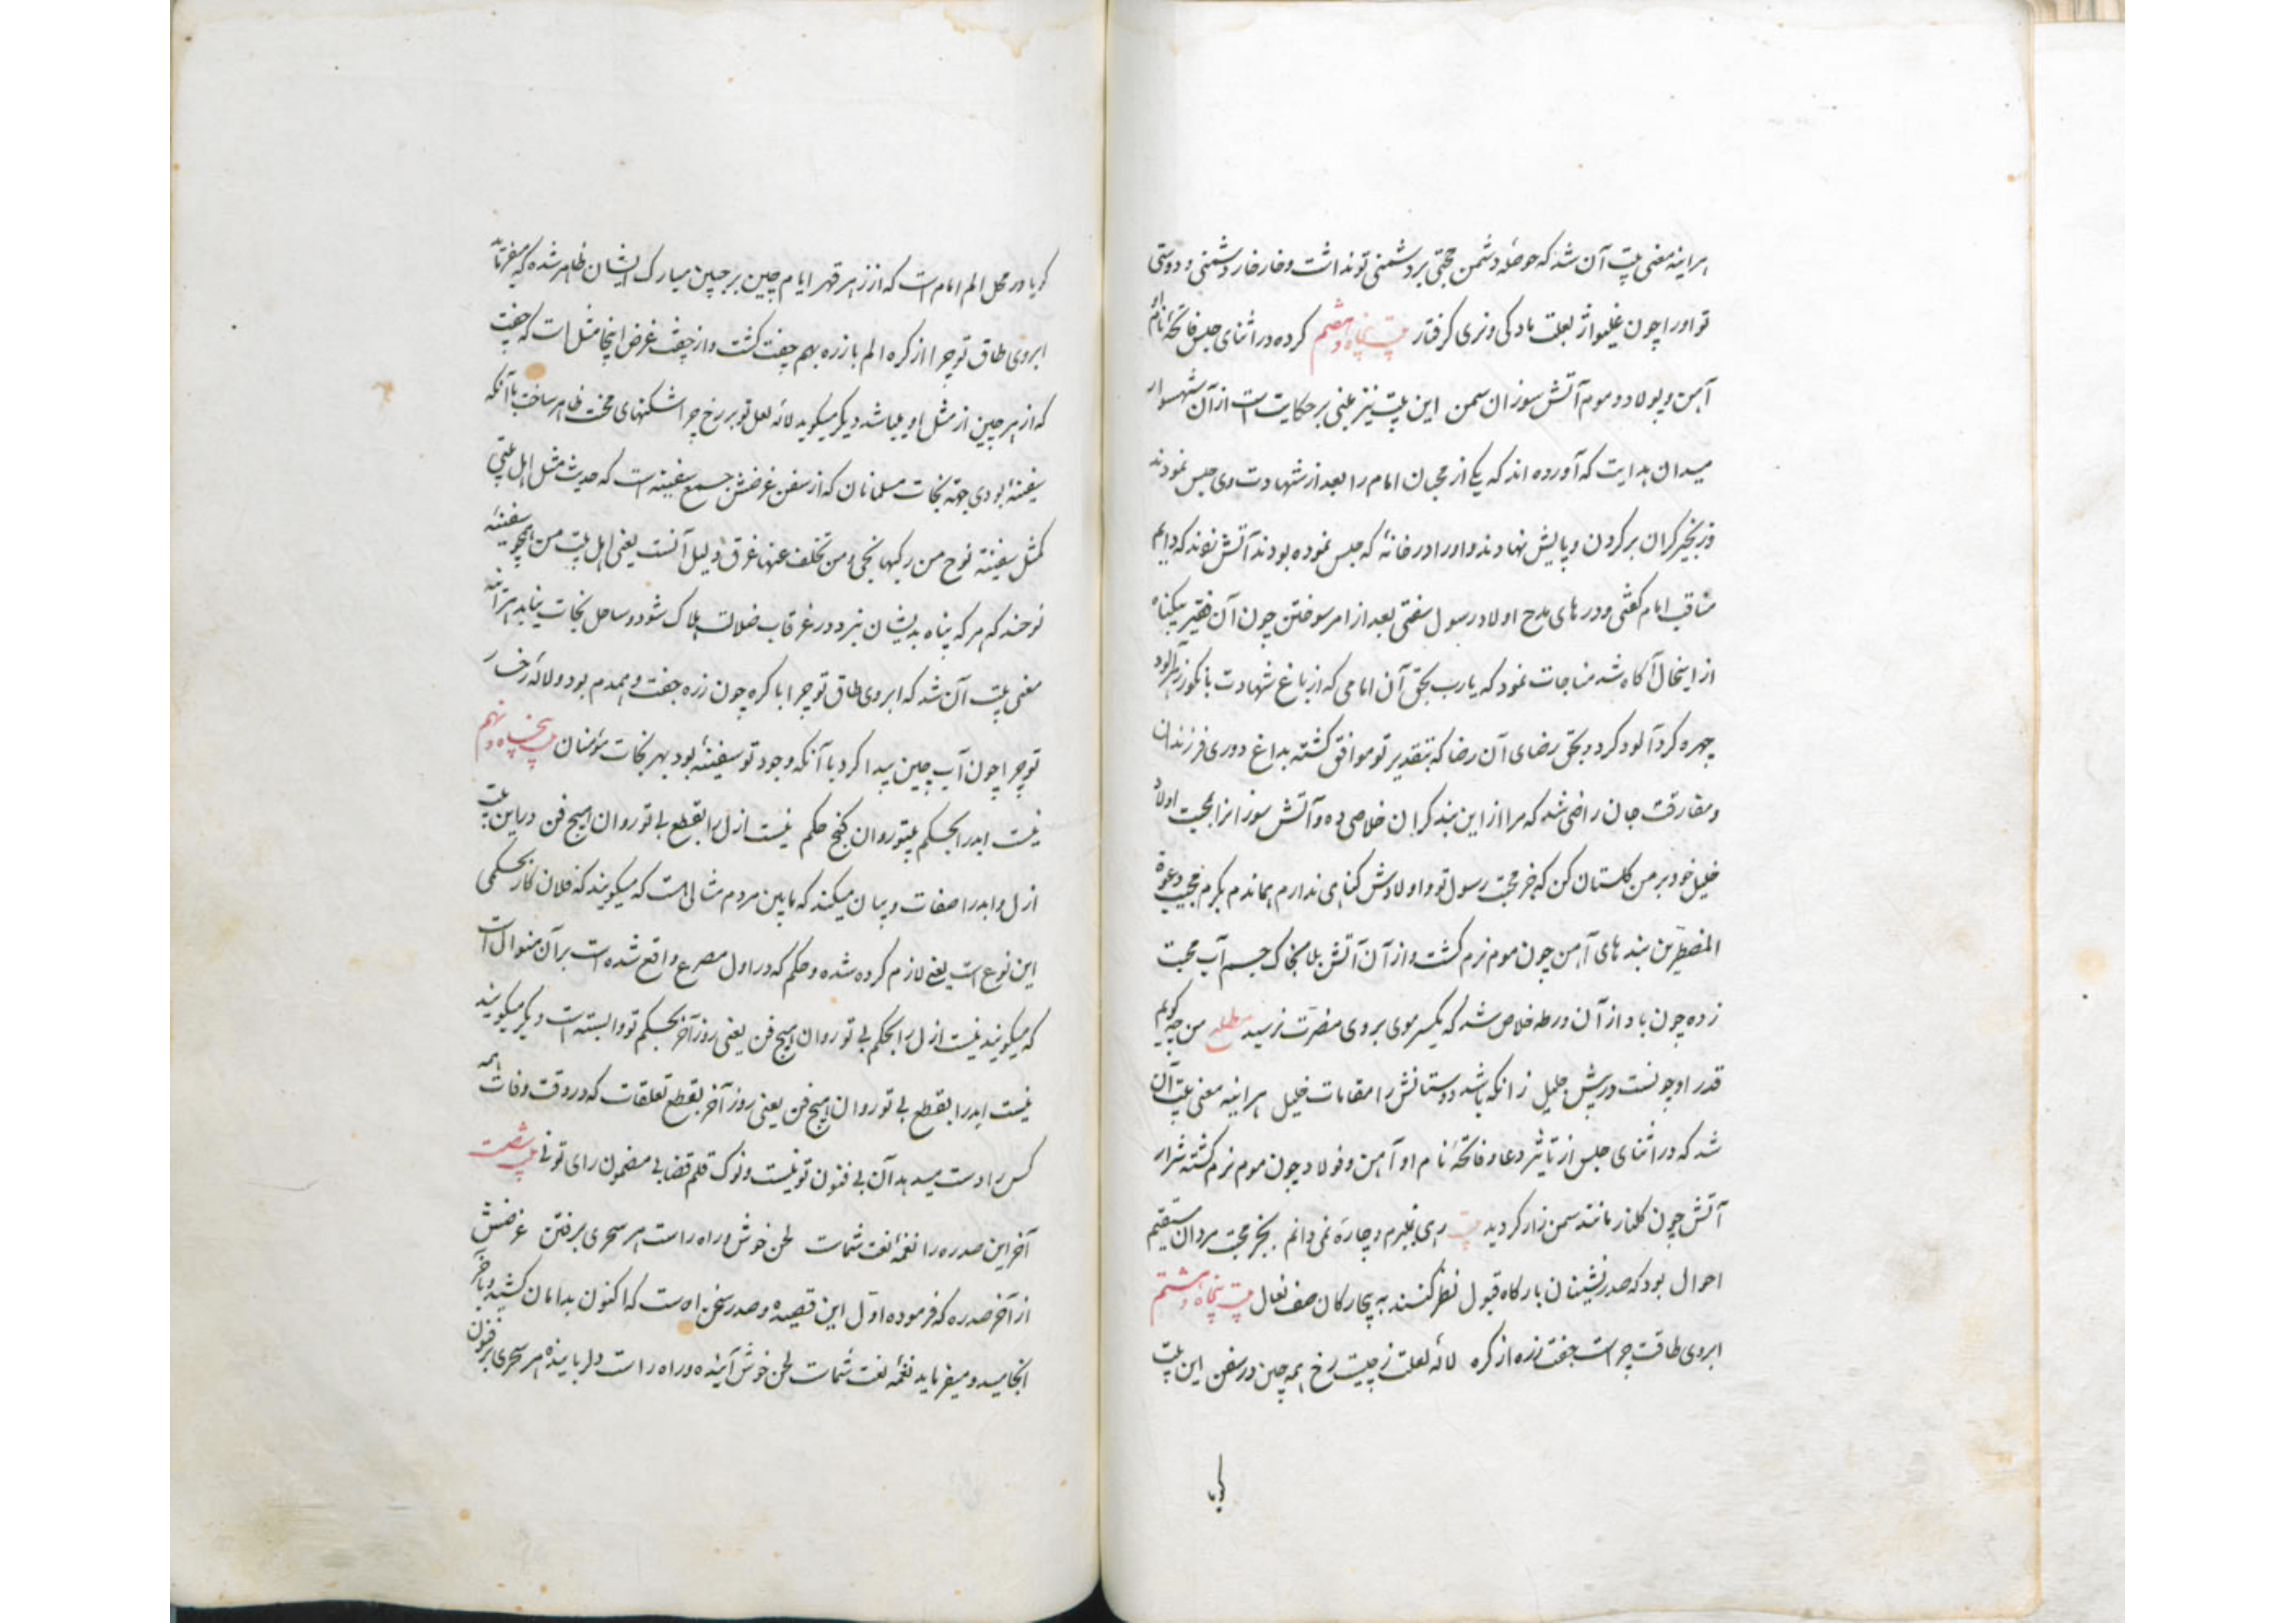 هرآینه معنی بیت آن شد که حوصلهٔ دشمن حجتی بر دشمنی تو نداشت و خار خار دشمنی و دوستی
تو او را چون غلیواژ بعلت مادگی و نری گرفتار بیت پنجاه و هفتم کرده در اثنای حبس فاتحهٔ نام او
آهن و پولاد و موم آتش سوزان سمن این بیت نیز مبنی بر حکایت است از آن شهسوار
میدان هدایت که آورده اند که یکی از محبان امام را بعد از شهادت وی حبس نمودند
و زنجیر گران بر گردن و پایش نهادند و او را در خانهٔ که حبس نموده بودند آتش زدند که دایم
مناقب امام گفتی و درهای مدح اولاد رسول سفتی بعد از امر سوختن چون آن فقیر بیگناه
از اینحال آگاه شد مناجات نمود که یارب بحق آن امامی که از باغ شهادت بانگور زهرآلود
چهره گردآلود کرد و بحق رضای آن رضا که بتقدیر تو موافق گشته بداغ دوری فرزندان
و مفارقت جان راضی شد که مرا از این بند گران خلاصی ده و آتش سوزانرا بمحبت اولاد
خلیل خود بر من گلستان کن که جز محبت رسول تو و اولادش گناهی ندارم هماندم بکرم مجیب دعوة
المضطرین بند های آهن چون موم نرم گشت و از آن آتش بلا بخاک جسم آب محبت
زده چون باد از آن ورطه خلاص شد که یکسر موی بروی مضرت نرسید من چه گویم
قدر او چونست در پیش جلیل زانکه باشد دوستانش را مقامات خلیل هرآینه معنی بیت آن
شد که در اثنای حبس از تأثیر دعا و فاتحهٔ نام او آهن و فولاد چون موم نرم گشته شرار
آتش چون گلنار مانند سمن زار گردید بیت رهی نمیبرم و چاره نمی دانم بجز محبت مردان مستقیم
احوال بود که صدرنشینان بارگاه قبول نظر کنند به بیچارگان صف نعال بیت پنجاه و هشتم
ابروی طاقت چراست جفت زره از گره لالهٔ لعلت ز چیست رخ همه چین در سفن این بیت
گویا
گویا در محل الم امام است که از زهر قهر ایام چین بر جبین مبارک ایشان ظاهر شده که میفرماید
ابروی طاق تو چرا از گره الم با زره بهم جفت گشت و از جفت غرض اینجا مثل است که جفت
که از هر چین از مثل او میباشد دیگر میگوید لالهٔ لعل تو بر رخ چرا شکنهای محنت ظاهر ساخت با آنکه
سفینهٔ بودی جهة نجات مسلمانان که از سفن غرضش جمع سفینه است که حدیث مثل اهل بیتی
کمثل سفینة نوح من رکبها نجی و من تخلف عنها غرق دلیل آنست یعنی اهل بیت من همچو سفینهٔ
نوحند که هر که پناه بدیشان نبرد در غرقاب ضلالت هلاک شود و ساحل نجات نیابد هرآینه
معنی بیت آن شد که ابروی طاق تو چرا با گره چون زره جفت و همدم بود و لالهٔ رخسار
تو چرا چون آب چین پیدا کرد با آنکه وجود تو سفینهٔ بود بهر نجات مؤمنان بیت پنجاه و نهم
نیست ابد را بحکم بیتو روان کنج حکم نیست ازل را بقطع بی تو روان هیچ فن در این بیت
ازل و ابد را صفات و بیان میکند که مابین مردم مثالی هست که میگویند که فلان کار بحکمی
این نوع است یعنی لازم کرده شده و حکم که در اول مصرع واقع شده است بر آن منوال است
که میگویند نیست ازل را بحکم بی تو روان هیچ فن یعنی روز آخر بحکم تو وابسته است دیگر میگویند
نیست ابد را بقطع بی تو روان هیچ فن یعنی روز آخر بقطع تعلقات که در وقت وفات همه
کس را دست میدهد آن بی فنون تو نیست و نوک قلم قضا بی مضمون رای تو نی بیت شصت
آخر این صدره را نغمهٔ نعت شماست لحن خوش و راه راست هر سحری بر فتن غرضش
از آخر صدره که فرموده اول این قصیده و صدر سخن اوست که اکنون بدامان کشیده و بآخر
انجامید و میفرماید نغمهٔ نعت شماست لحن خوش آینده و راه راست دلرباینده هر سحری بر فنون